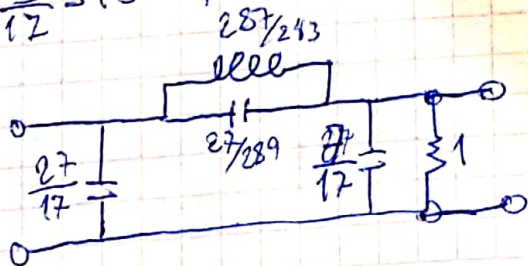 17
287/243
27/289
27/17
27/17
1